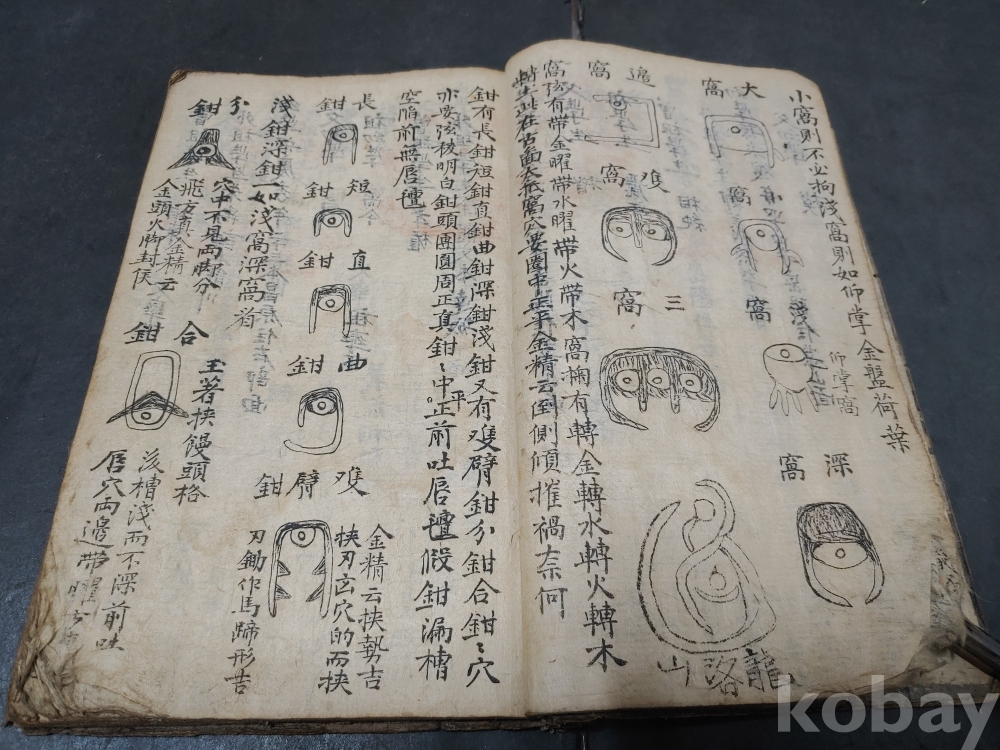 小窩則不必拘淺窩則如仰掌金盤荷葉
大窩
小窩
淺窩
仰掌窩
深窩
邊窩
雙窩
三窩
龍洛山
窩
弦有帶金曜帶水曜帶火帶木窩有轉金轉水轉火轉木
轉土此在古
窩穴要圓中正平金精云倒側傾摧禍奈何
鉗有長鉗短鉗直鉗曲鉗深鉗淺鉗又有雙臂鉗分鉗合鉗〻穴
亦要弦稜明白鉗頭團圓周正真鉗〻中平正前吐唇氊假鉗漏槽
空陷前無唇氊
長鉗
短鉗
直鉗
曲鉗
雙臂鉗
金精云挾勢吉
挾刃在穴的而挾
刃鋤作馬蹄形吉
淺鉗深鉗一如淺窩深窩看
分鉗
穴中不見兩脚分
飛方真金精云
金頭火脚封侯
合鉗
玉著挾饅頭格
後槽淺而不深前吐
唇穴兩邊帶曜
kobay